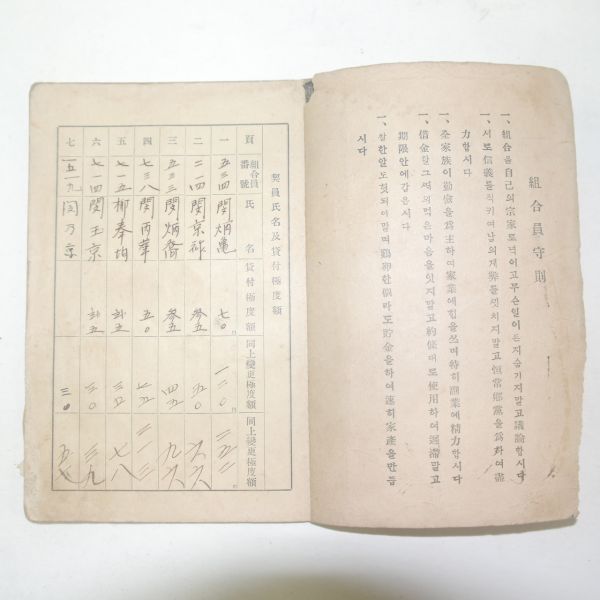 組合員守則
一、組合을自己의宗家로녁이고무슨일이든지숨기지말고議論합시다
一、서로信義를직키여남의게弊를싯치지말고恒常鄕黨을爲하여盡
力합시다
一、全家族이勤儉을爲主하여家業에힘을쓰며特히農業에精力합시다
一、借金할그때의먹은마음을잇지말고約條대로使用하여遲滯말고
期限안에갑읍시다
一、쌀한알도헛되이말며鷄卵한개라도貯金을하여速히家產을만듭
시다
契員氏名及貸付極度額
頁 組合員番號 氏名 貸付極度額 同上變更極度額 同上變更極度額
一 五三四 閔炳龜 七〇 一二〇
二 二一四 閔京 五〇
三 五三三 閔炳 四五 九六
四 七三八 閔丙華 五〇
五 七一五 柳奉均 七八
六 七一四 閔玉京 三〇 三九
七 一五一九 閔乃京 三〇